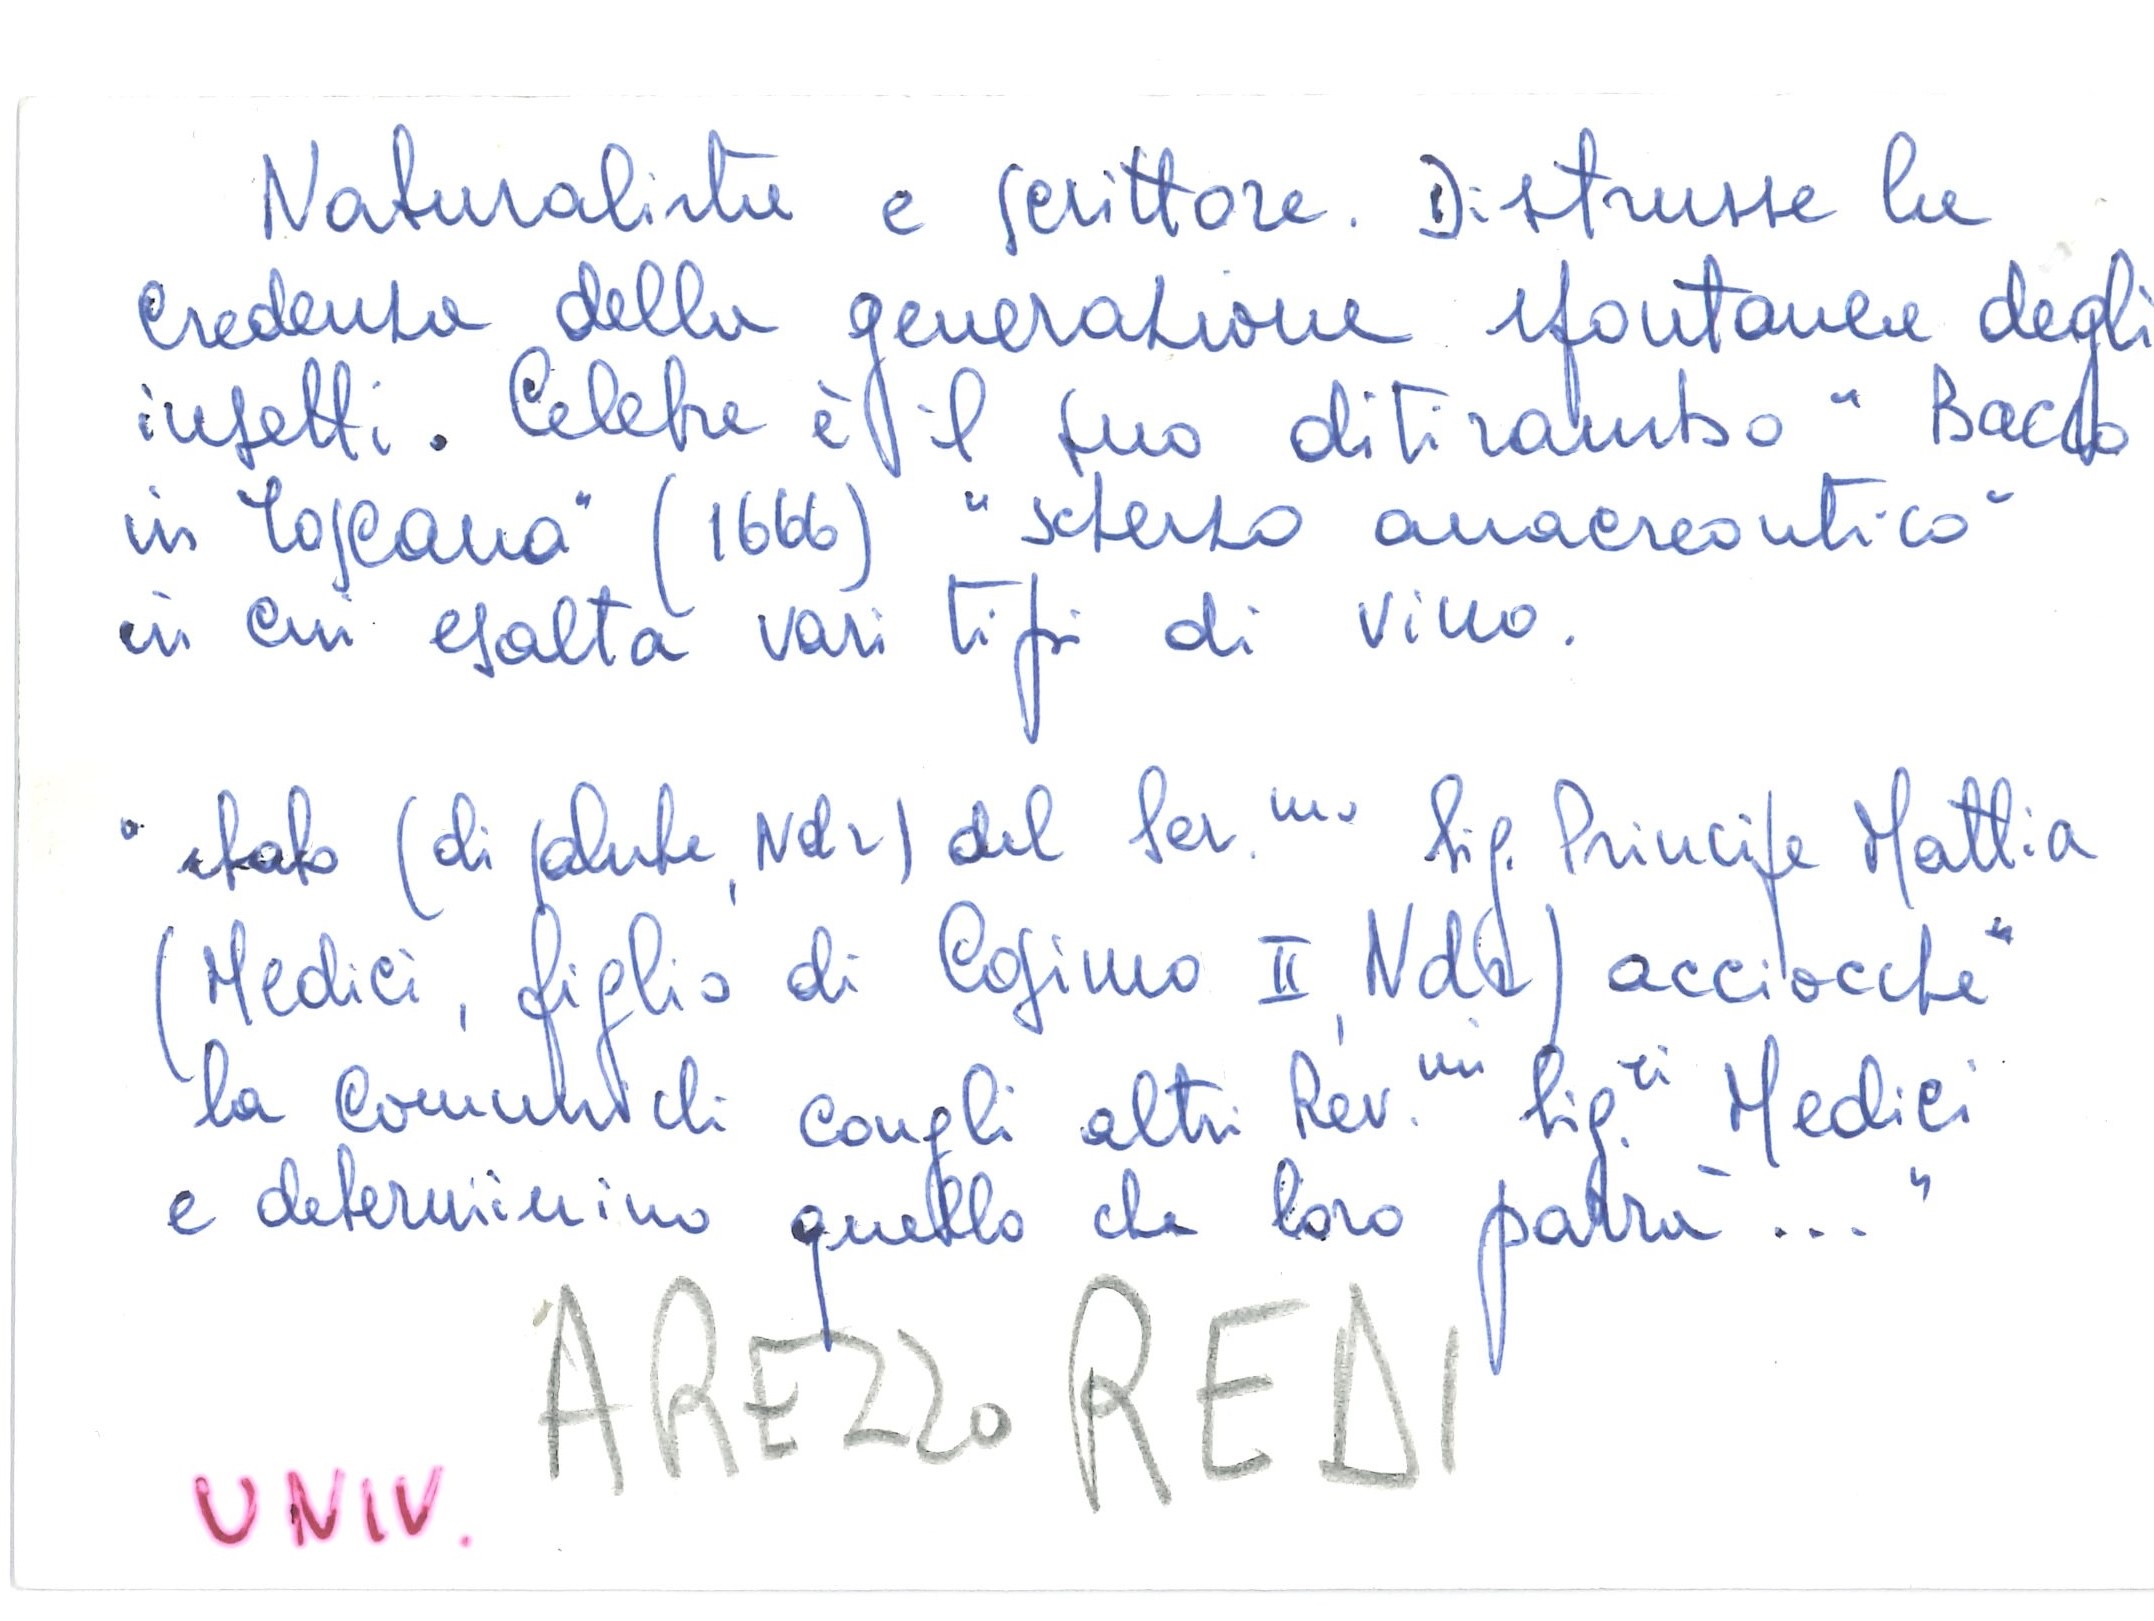 Naturalista e scrittore. Distrusse la
credenza della generazione spontanea degli
insetti. Celebre è il suo ditirambo " Bacco
in Toscana" (1666) "scherzo anacreontico"
in cui esalta vari tipi di vino.
" stato (di salute, Ndr) del Ser.mo Sig. Principe Mattia
(Medici, figlio di Cosimo II, Ndr) acciocche"
la comunichi congli altri Rev.mi Sig.ri Medici
e determinino quello che loro parrà ..."
AREZZO REDI
UNIV.